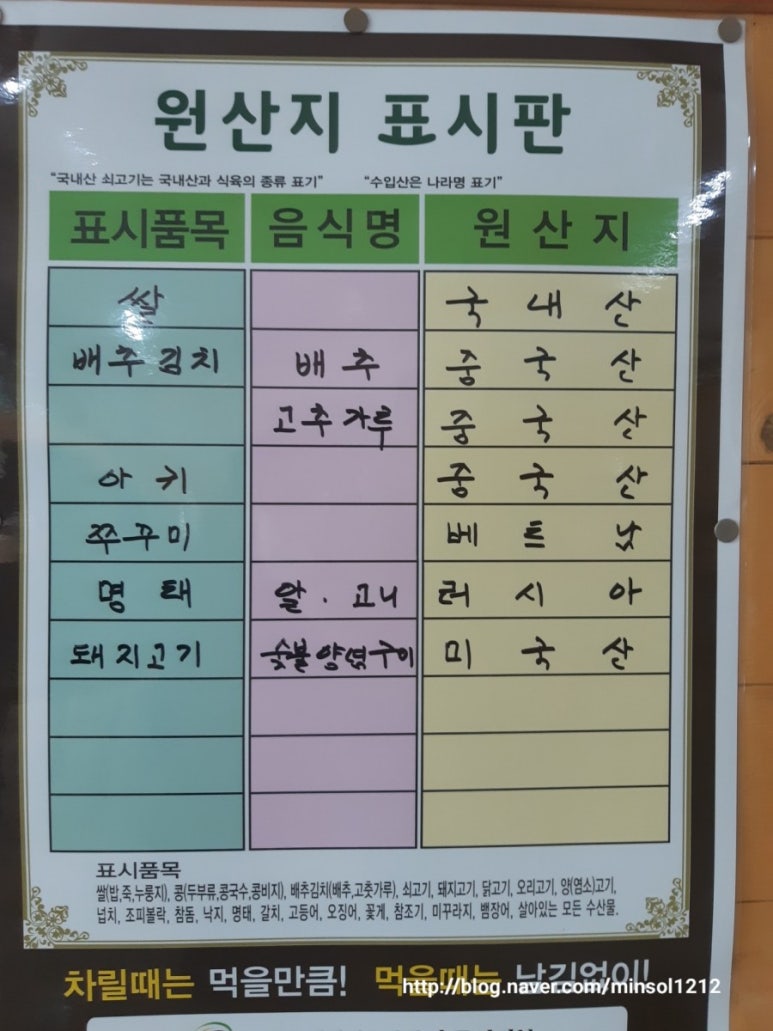 원산지 표시판
"국내산 쇠고기는 국내산과 식육의 종류 표기" "수입산은 나라명 표기"
표시품목 음식명 원산지
쌀 국내산
배추김치 배추 중국산
고추가루 중국산
아귀 중국산
쭈꾸미 베트남
명태 알·고니 러시아
돼지고기 숯불양념구이 미국산
표시품목
쌀(밥,죽,누룽지), 콩(두부류,콩국수,콩비지), 배추김치(배추,고춧가루), 쇠고기, 돼지고기, 닭고기, 오리고기, 양(염소)고기,
넙치, 조피볼락, 참돔, 낙지, 명태, 갈치, 고등어, 오징어, 꽃게, 참조기, 미꾸라지, 뱀장어, 살아있는 모든 수산물.
차릴때는 먹을만큼! 먹을때는 남김없이!
http://blog.naver.com/minsol1212